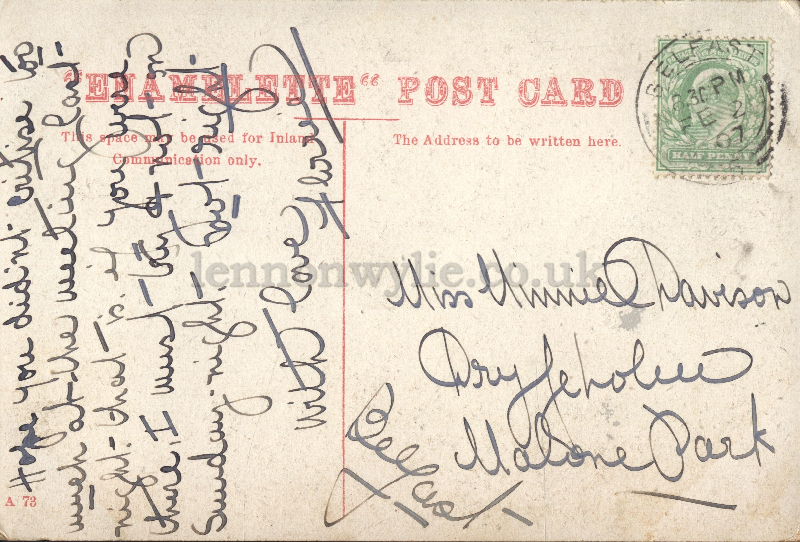 "ENAMELETTE" POST CARD
This space may be used for Inland
Communication only.
The Address to be written here.
BELFAST
8.30 PM
FE 2
07
HALF PENNY
Hope you didn't critise too
much at the meeting last
night. that is if you were
there, I must try & rest on
Sunday night. Good-night
With love Florrie
Miss Minnie Davison
Dryfeholm
Malone Park
Belfast
A 73
lennonwylie.co.uk